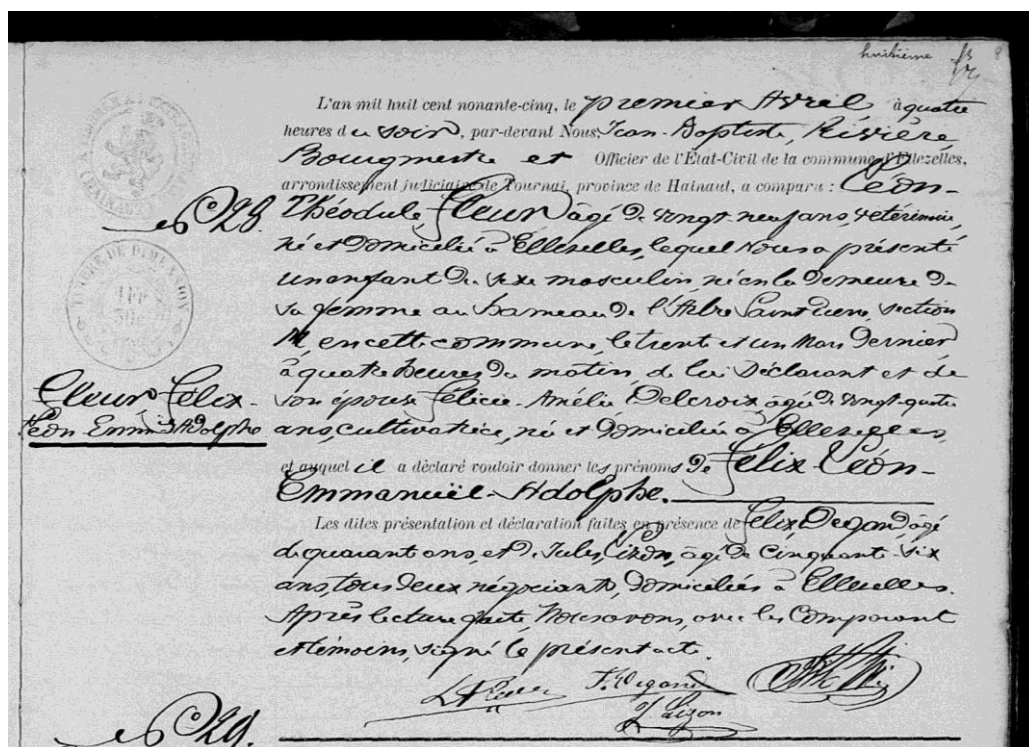 huitième
L'an mil huit cent nonante-cinq, le premier Avril à quatre
heures du soir, par-devant Nous, Jean-Baptiste, Rivière
Bourgmestre et Officier de l'État-Civil de la commune d'Ellezelles,
arrondissement judiciaire de Tournai, province de Hainaut, a comparu : Léon-
No 28. Théodule Fleur âgé de vingt neuf ans, vétérinaire,
né et domicilié à Ellezelles, lequel Nous a présenté
un enfant du sexe masculin, né en la demeure de
TIMBRE DE DIMENSION
sa femme au hameau de l'Arbre Saint Pierre, section
M en cette commune, le trente et un Mars dernier
à quatre heures du matin, de lui Déclarant et de
Fleur Félix- son épouse Félicie-Amélie Delcroix âgée de vingt-quatre
Léon Emm. Adolphe ans, cultivatrice, née et domiciliée à Ellezelles,
et auquel il a déclaré vouloir donner les prénoms de Félix Léon-
Emmanuël-Adolphe.
Les dites présentation et déclaration faites en présence de Félix, Degand, âgé
de quarante ans, et de Jules, âgé de cinquante-six
ans, tous deux négociants, domiciliés à Ellezelles.
Après lecture faite, Nous avons, avec les Comparant
et témoins, signé le présent acte.
F. Degand
No 29.